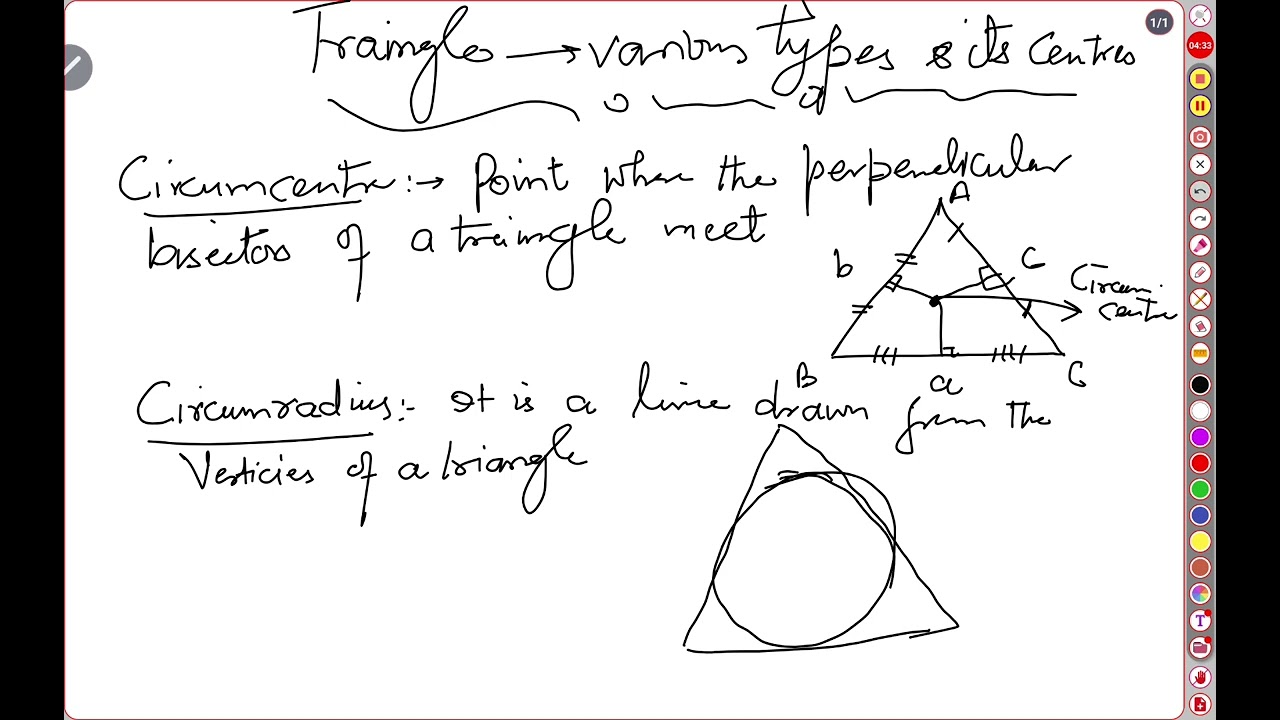 Traingles → various types & its centres
Circumcentre:→ Point where the perpendicular
bisectors of a traingle meet
A
b
C
Circum.
centre
B
a
C
Circumradius:- It is a line drawn from the
Verticies of a triangle
1/1
04:33
T